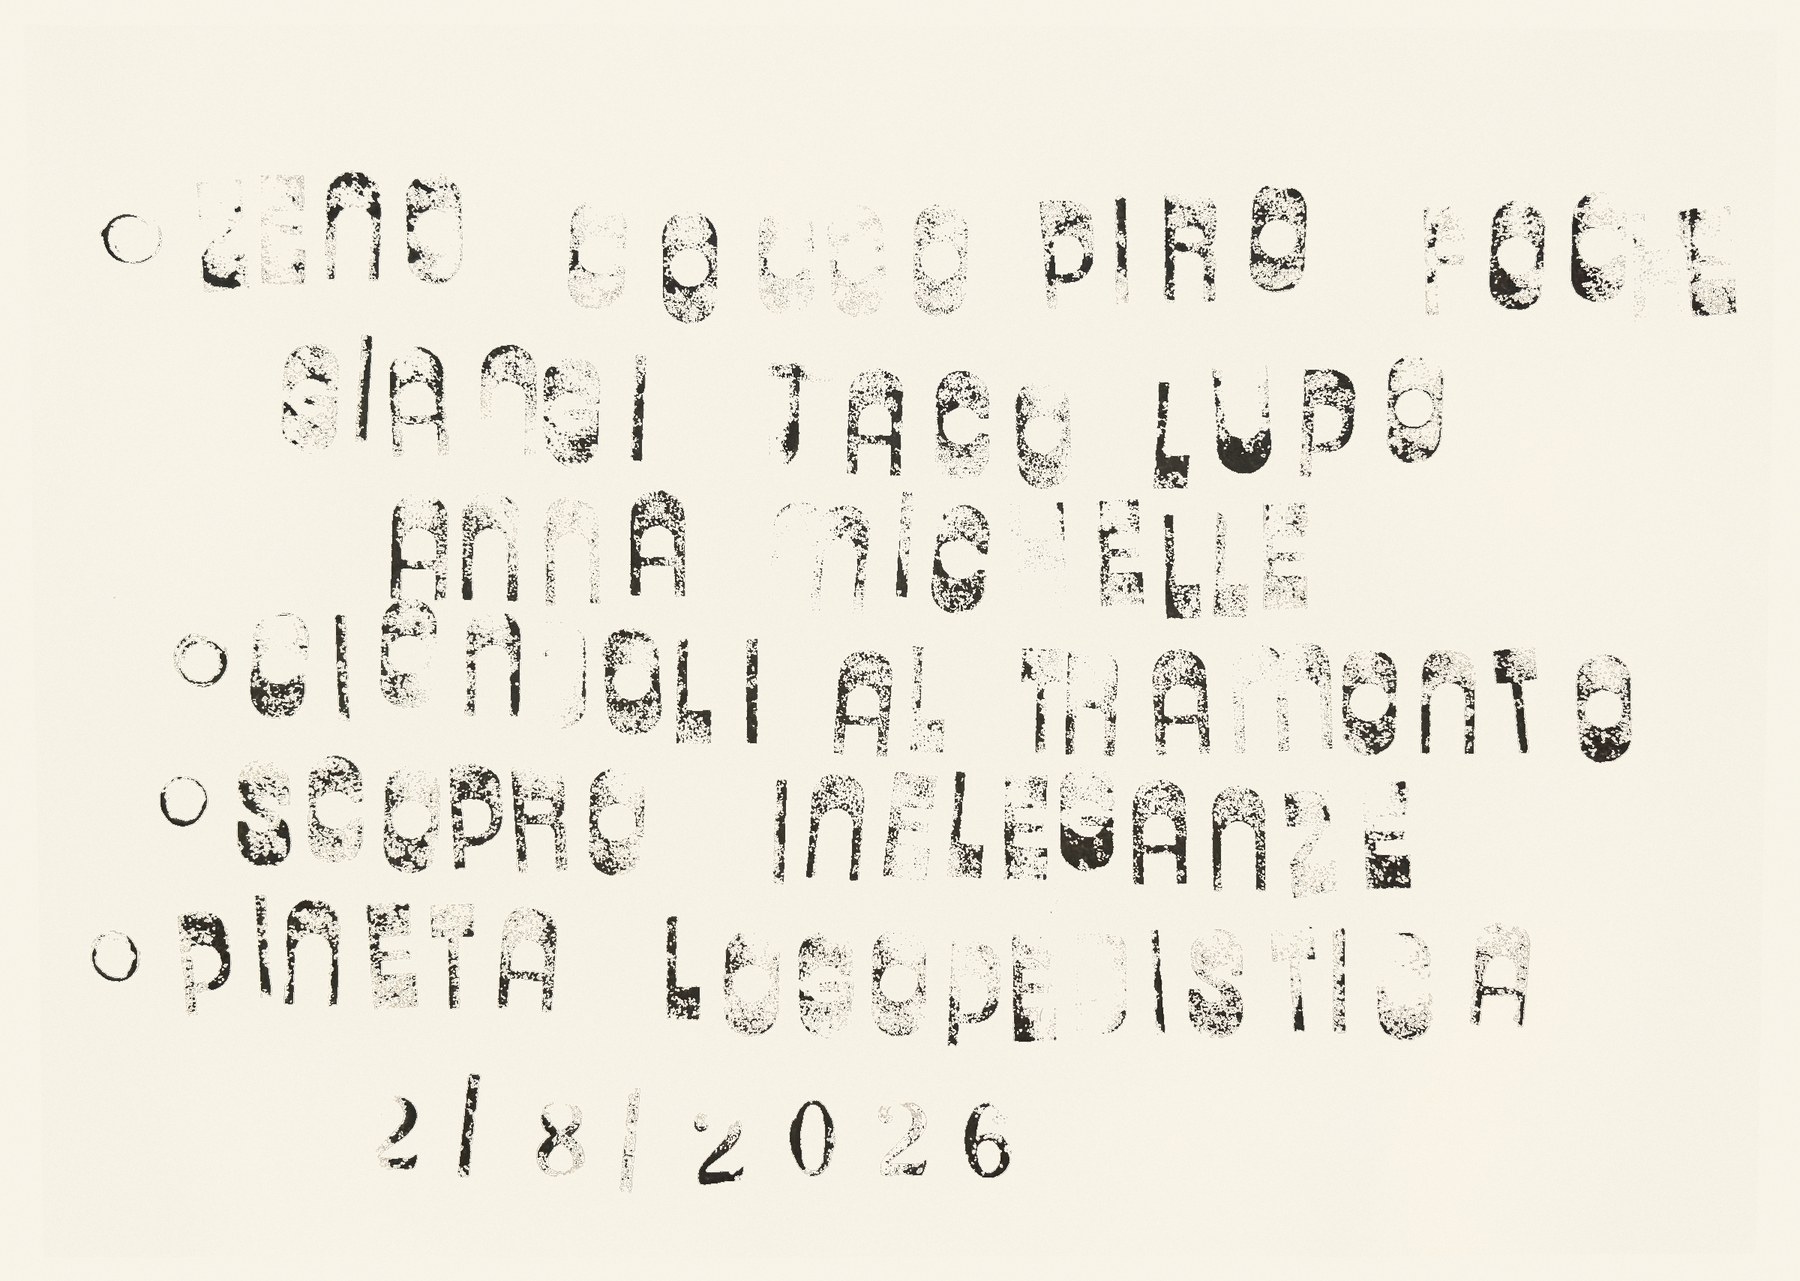 ○ ZENO PIRO
GIANGI TACO LUPO
ANNA MICHELLE
○ CIONDOLI AL TRAMONTO
○ SCOPRO INELEGANZE
○ PINETA LOGOPEDISTICA
2/8/2026